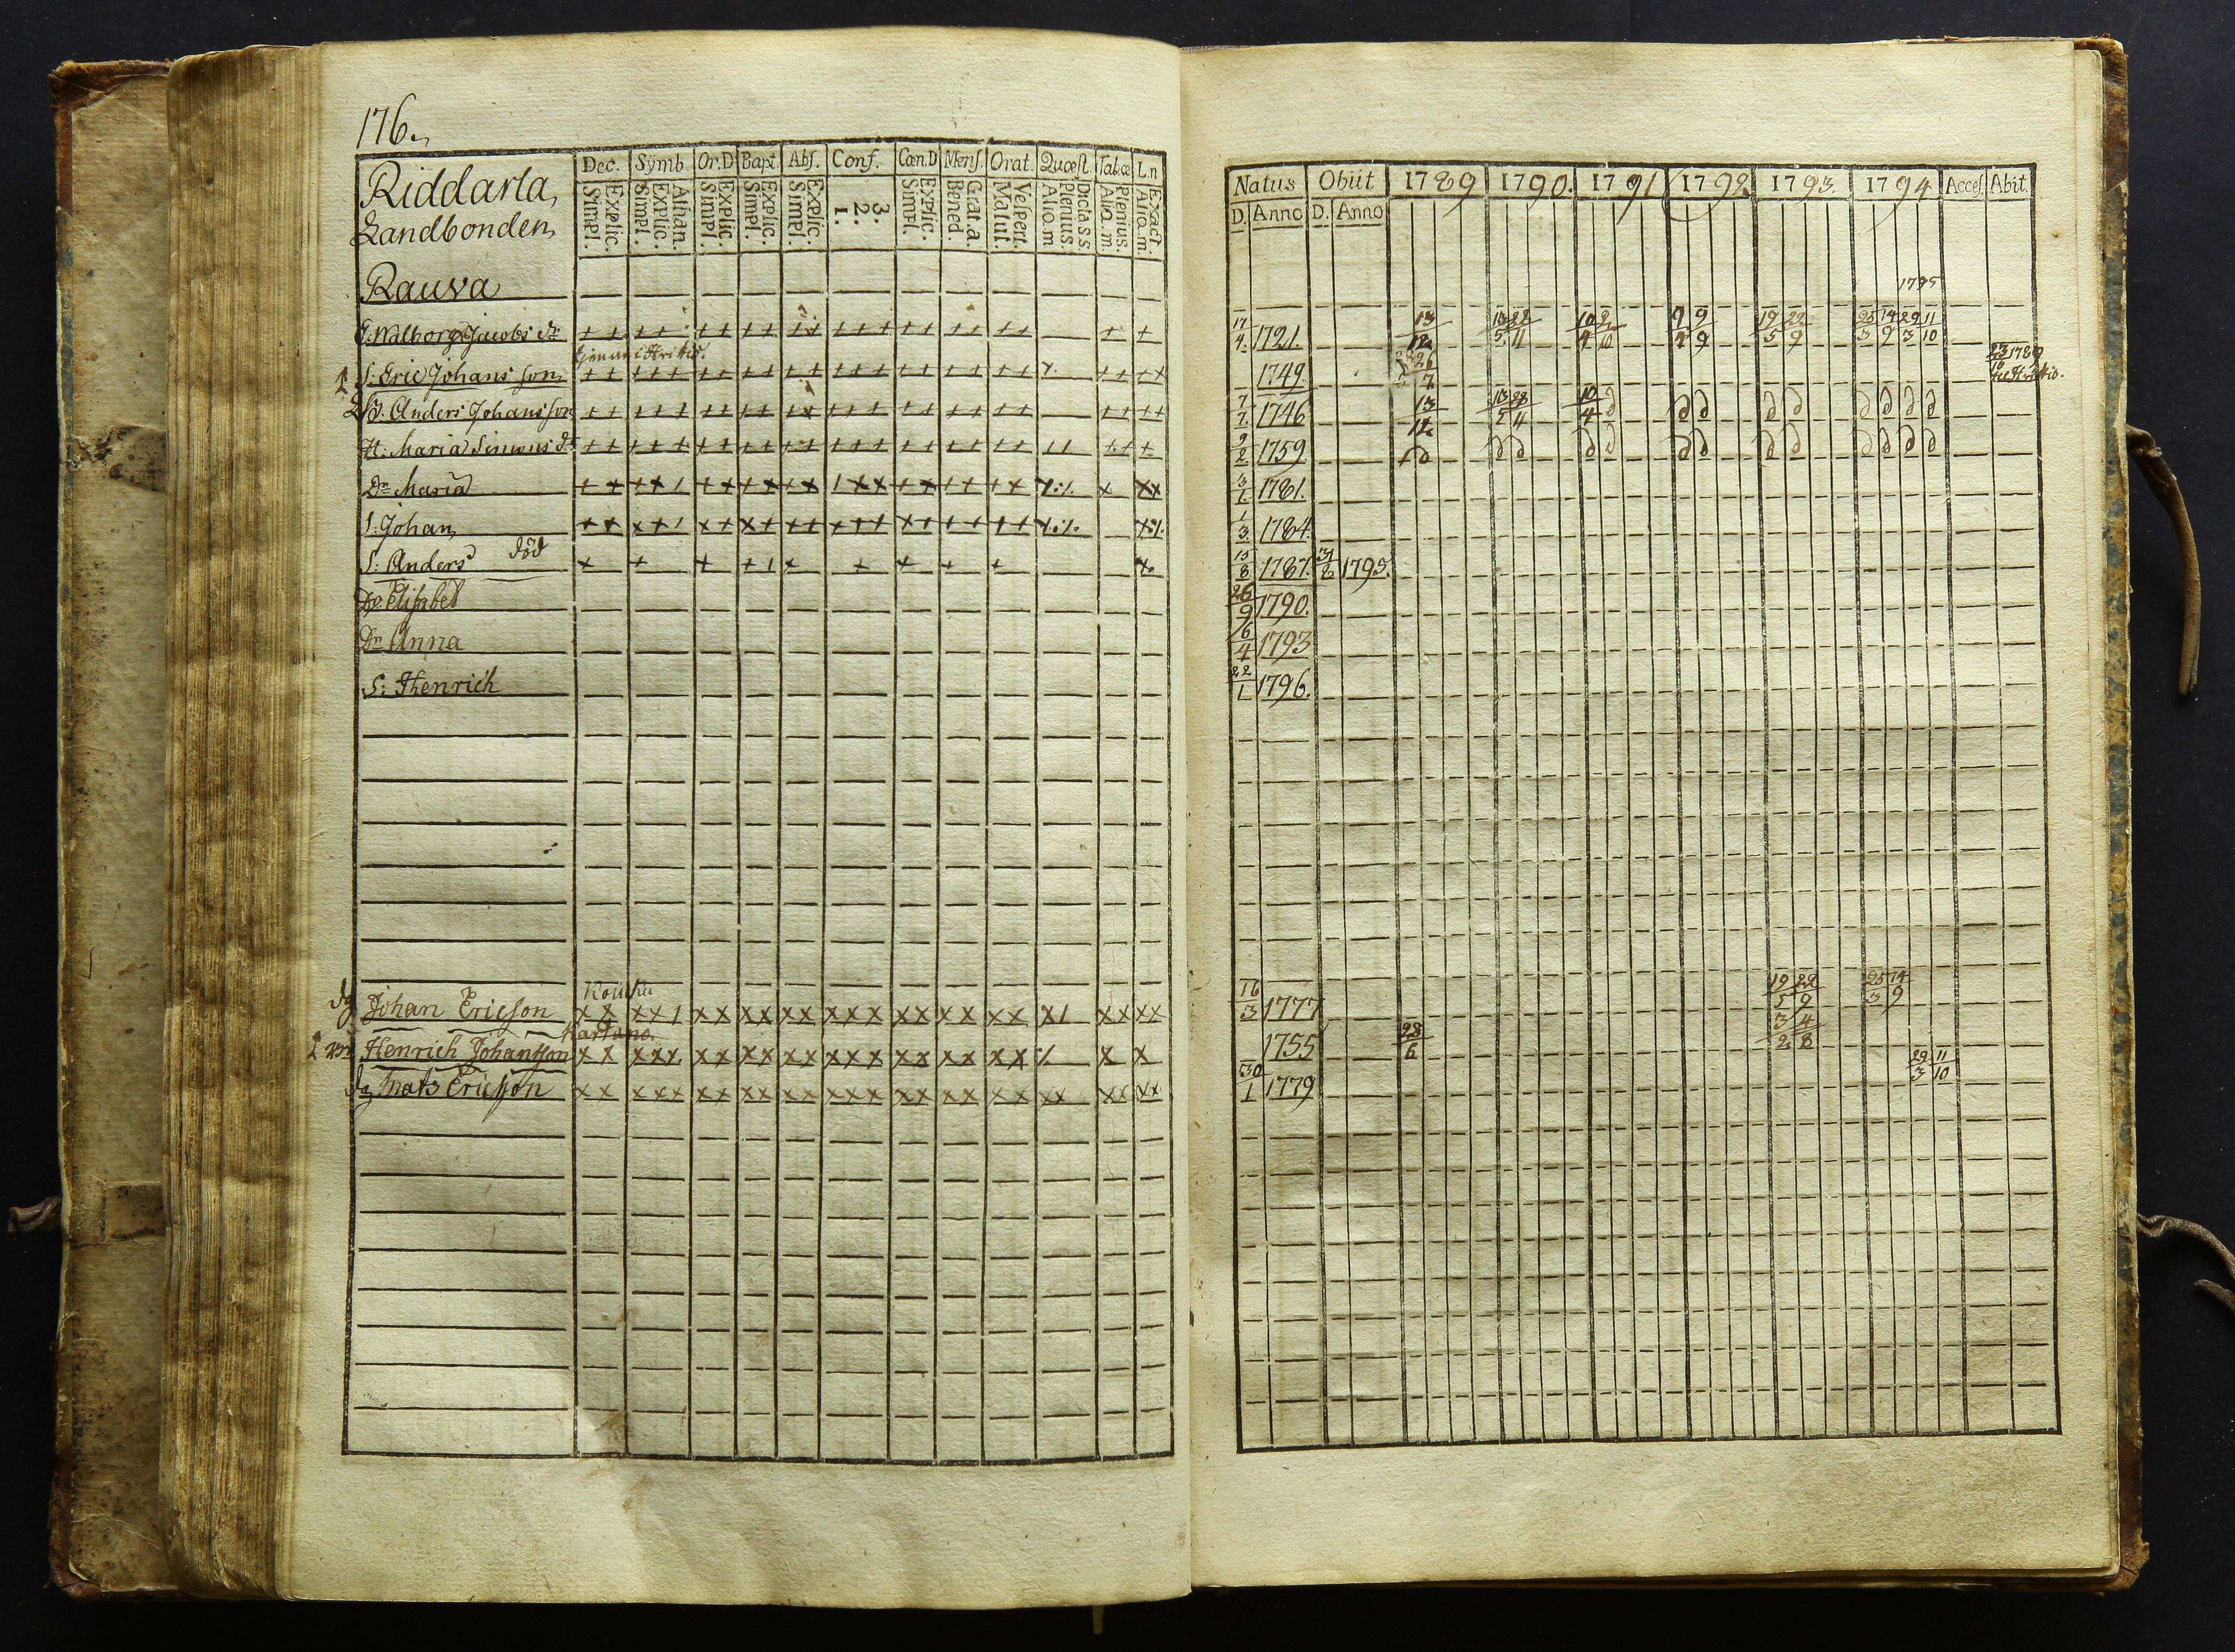 176.
Riddarla,
Landbonden,
Dec. Symb. Or.D Bapt Abs. Conf. Cœn.D Mens. Orat. Quæst. Tabœ L.n
Explic. Simpl. Athan. Explic. Simpl. Explic. Simpl. Explic. Simpl. Explic. Simpl. 3. 2. 1. Explic. Simpl. Grat.a. Bened. Vespert. Matut. Dicta s s. Plenius. Aliq.m Plenius. Aliq.m. Exact. Aliq.m.
Rauva
E. Walborg Jacobs dr
S: Eric Johansson
Anders Johansson
H: Maria Simons dr
Dr Maria
S: Johan
S: Anders död
Dr Elisabet
Dr Anna
S: Henrich
Johan Ericson
Kartano
Henrich Johansson
Mats Ericsson
Natus Obiit 1789 1790. 1791 1792 1793. 1794 Acces. Abit.
D. Anno D. Anno
1795
17/4 1721. 13/12 13/5 22/11 10/4 2/10 9/9 19/5 22/9 25/3 14/9 29/3 11/10
1749. 26/7 1789
7/7 1746 13/12 10/4
9/2 1759
1781.
1/3 1784.
15/8 1787. 1795.
26/9 1790.
6/4 1793
22/1 1796.
16/3 1777 19/5 22/9 25/3 14/9
1755 28/6 3/2 4/8
30/1 1779 29/3 11/10